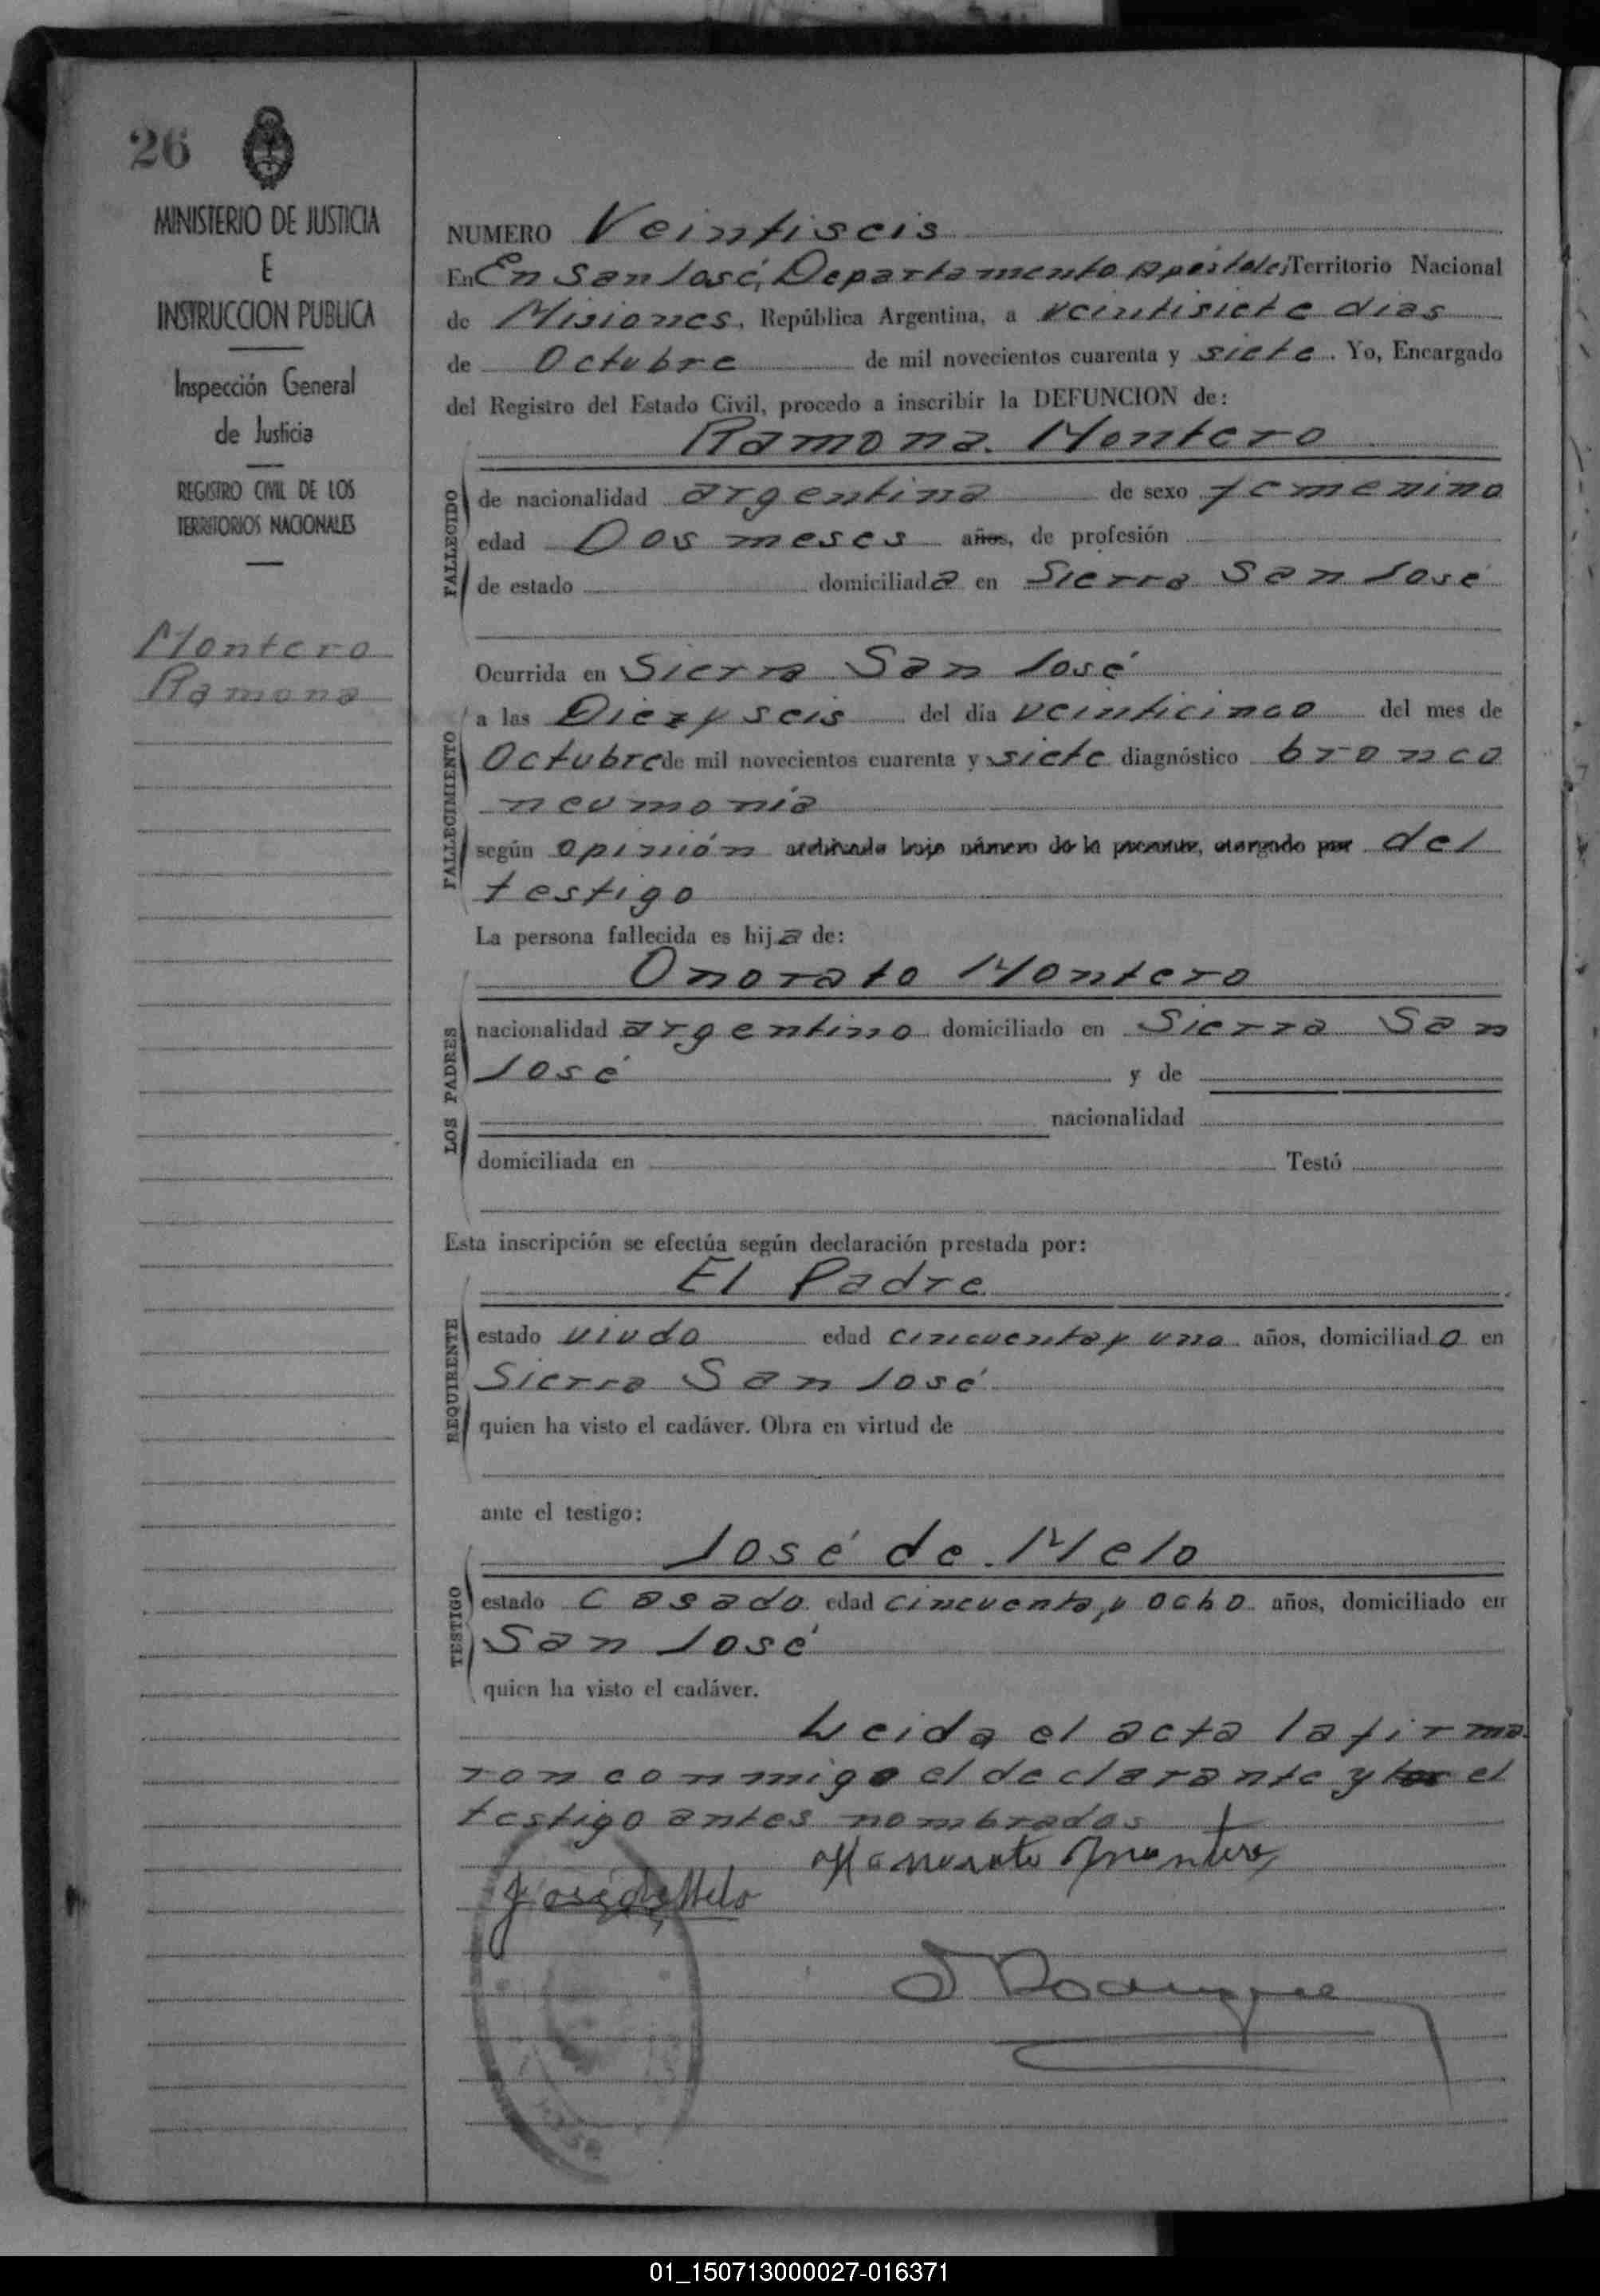 26
MINISTERIO DE JUSTICIA
E
INSTRUCCION PUBLICA
Inspección General
de Justicia
REGISTRO CIVIL DE LOS
TERRITORIOS NACIONALES
Montero
Ramona
NUMERO Veintiseis
En En San José, Departamento Apóstoles, Territorio Nacional
de Misiones, República Argentina, a veintisiete dias
de Octubre de mil novecientos cuarenta y siete. Yo, Encargado
del Registro del Estado Civil, procedo a inscribir la DEFUNCION de:
Ramona Montero
FALLECIDO
de nacionalidad argentina de sexo femenino
edad Dos meses años, de profesión
de estado domiciliada en Sierra San José
FALLECIMIENTO
Ocurrida en Sierra San José
a las Diez y seis del día veinticinco del mes de
Octubre de mil novecientos cuarenta y siete diagnóstico bronco
neumonía
según opinión archivado bajo número de la presente, otorgado por del
testigo
La persona fallecida es hija de:
Onorato Montero
LOS PADRES
nacionalidad argentino domiciliado en Sierra San
José y de
nacionalidad
domiciliada en Testó
Esta inscripción se efectúa según declaración prestada por:
El Padre
REQUIRENTE
estado viudo edad cincuenta y uno años, domiciliado en
Sierra San José
quien ha visto el cadáver. Obra en virtud de
ante el testigo:
José de Melo
TESTIGO
estado Casado edad cincuenta y ocho años, domiciliado en
San José
quien ha visto el cadáver.
Leida el acta la firma
ron conmigo el declarante y el
testigo antes nombrados
Honorato Montero
José de Mello
J Rodriguez
01_150713000027-016371